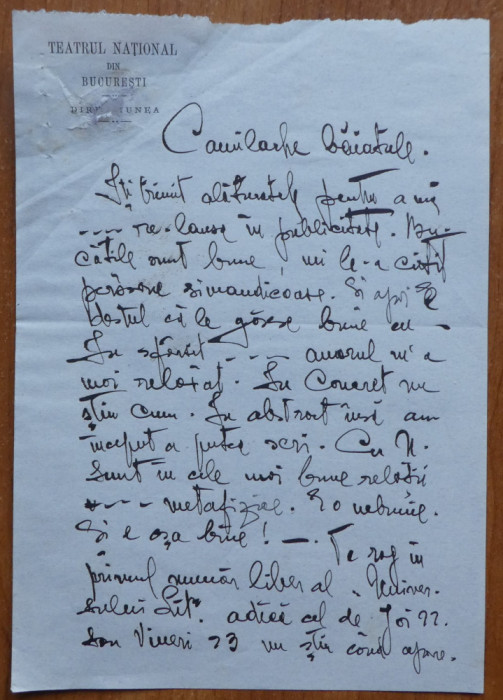 TEATRUL NAȚIONAL
DIN
BUCUREȘTI
DIRECȚIUNEA
Camilache băiatule.
Iți trimit alăturatele pentru a mă
---- re-lansa în publicitate. Bu-
cățile sunt bune, mi le-a citit
persoane simandicoase. Și apoi E
destul că le găsesc bune eu -
In sfârșit ---- amorul m'a
mai relaxat. In Concret nu
știu cum. In abstract însă am
început a putea scri. Cu N.
sunt în cele mai bune relații
---- metafizice. E o nebunie.
Și e așa bine! —. Te rog în
primul număr liber al "Univer-
sului Lit". adică cel de Joi 22.
sau Vineri 23 nu știu când apare.